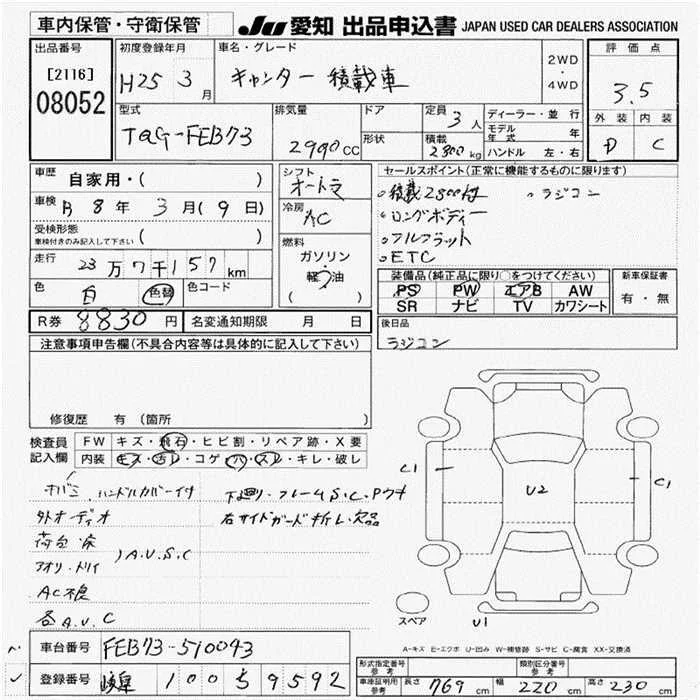 車内保管・守衛保管
JU 愛知 出品申込書 JAPAN USED CAR DEALERS ASSOCIATION
出品番号
[2116]
08052
初度登録年月
H25 3月
車名・グレード
キャンター 積載車
2WD
・
4WD
評価点
3.5
外装 内装
D C
型式
TQG-FEB73
排気量
2990CC
ドア
形状
定員
3人
積載
2800kg
ディーラー・並行
モデル年式 年
ハンドル 左・右
車歴
自家用・( )
車検 R 8年 3月(9日)
受検形態
車検付きのみ記入して下さい ( )
走行 23万7千157km
色 白 色替 色コード
R券 8830円 名変通知期限 月 日
シフト
オートマ
冷房
AC
燃料
ガソリン
・
軽油
( )
セールスポイント(正常に機能するものに限ります)
。積載2800付 。ラジコン
。ロングボディー
。フルフラット
。ETC
装備品(純正品に限り○をつけてください)
PS PW エアB AW
SR ナビ TV カワシート
新車保証書
有・無
後日品
ラジコン
注意事項申告欄(不具合内容等は具体的に記入して下さい)
修復歴 有(箇所 )
検査員
記入欄
FW キズ・飛石・ヒビ割・リペア跡・X要
内装 キズ・汚レ・コゲ・穴・スレ・キレ・破レ
ハンドルカバー付
外オーディオ
荷台 床
アオリ・トリイ )A.U.S.C
AC不良
各A.U.C
下廻り・フレームS.C.Pウキ
右サイドガードナイレ・欠品
C1
U2
C1
U1
スペア
A-キズ E-エクボ U-凹み W-補修跡 S-サビ C-腐食 XX-交換済
車台番号 FEB73-510043
登録番号 岐阜 100 5 9592
形式指定番号
参考
類別区分番号
参考
車庫証明用
参考
長さ 769cm 幅 220cm 高さ 230cm